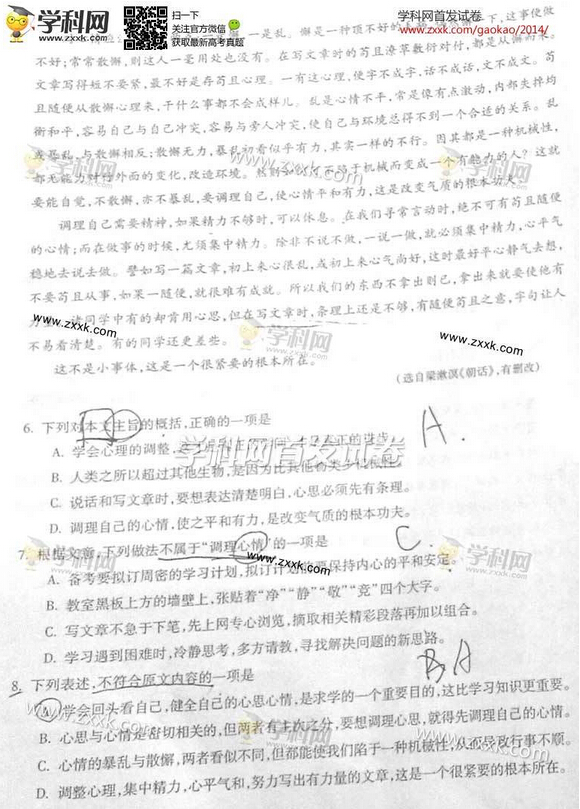 学科网
zxxk.com
扫一下
关注学科网官方微信
获取最新高考真题
学科网首发试卷
www.zxxk.com/gaokao/2014/
是一乱。懈是一种顶不好的
下，这事便做
不好；常常散懈，则这人一毫用处也没有。在写文章时的苟且潦草敷衍对付，都是从懈而来。
文章写得短不要紧，最不好是存苟且心理。一有这心理，便字不成字，话不成话，文不成文。苟
且随便从散懈心理来，干什么事都不会成样儿。乱是心情不平，常是像有点激动，内部失掉均
衡和平，容易自己与自己冲突，容易与旁人冲突，使自己与环境总得不到一个合适的关系。乱
或暴乱，与散懈相反；散懈无力，暴乱初看似乎有力，其实一样的不行。因其都是一种机械性，
都无能力对付外面的变化，改造环境。
不陷于机械而变成一个有能力的人？这就
要能自觉，不散懈，亦不暴乱，要调理自己，使心情平和有力，这是改变气质的根本功夫。
调理自己需要精神，如果精力不够时，可以休息。在我们寻常言动时，绝不可有苟且随便
的心情；而在做事的时候，尤须集中精力。除非不说不做，一说一做，就必须集中精力，心平气
稳地去说去做。譬如写一篇文章，初上来心很乱，或初上来心气尚好，这时最好平心静气去想，
不要苟且从事，如果一随便，就很难有成就。所以我们的东西不拿出则已，拿出来就要使他有
力
诸同学中有的却肯用心思，但在写文章时，条理上还是不够，有随便苟且之意，字句让人
不易看清楚。有的同学还更差些。
这不是小事体，这是一个很紧要的根本所在。
（选自梁漱溟《朝话》，有删改）
6. 下列对本文主旨的概括，正确的一项是
A.
A. 学会心理的调整
正的进步。
学科网首发试卷
B. 人类之所以超过其他生物，是因为比其他物类少机械性。
C. 说话和写文章时，要想表达清楚明白，心思必须先有条理。
D. 调理自己的心情，使之平和有力，是改变气质的根本功夫。
C.
7. 根据文章，下列做法不属于“调理心情”的一项是
A. 备考要拟订周密的学习计划，拟订计划
要保持内心的平和安定。
B. 教室黑板上方的墙壁上，张贴着“净”“静”“敬”“竞”四个大字。
C. 写文章不急于下笔，先上网专心浏览，摘取相关精彩段落再加以组合。
D. 学习遇到困难时，冷静思考，多方请教，寻找解决问题的新思路。
A
8. 下列表述，不符合原文内容的一项是
A. 学会回头看自己，健全自己的心思心情，是求学的一个重要目的，这比学习知识更重要。
B. 心思与心情是密切相关的，但两者有主次之分，要想调理心思，就得先调理自己的心情。
C. 心情的暴乱与散懈，两者看似不同，但都能使我们陷于一种机械性，从而导致行事不顺。
D. 调整心理，集中精力，心平气和，努力写出有力量的文章，这是一个很紧要的根本所在。